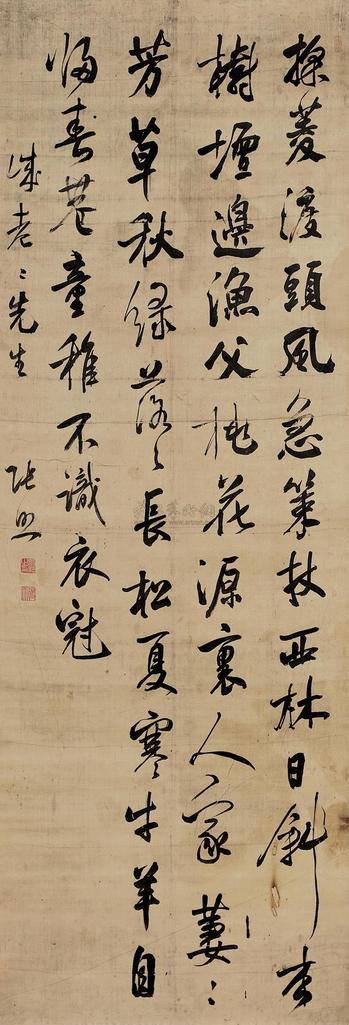 採菱渡頭風急策杖西林日斜杏
樹壇邊漁父桃花源裏人家萋〻
芳草秋綠落〻長松夏寒牛羊自
歸春巷童稚不識衣冠
誠老〻先生 張照